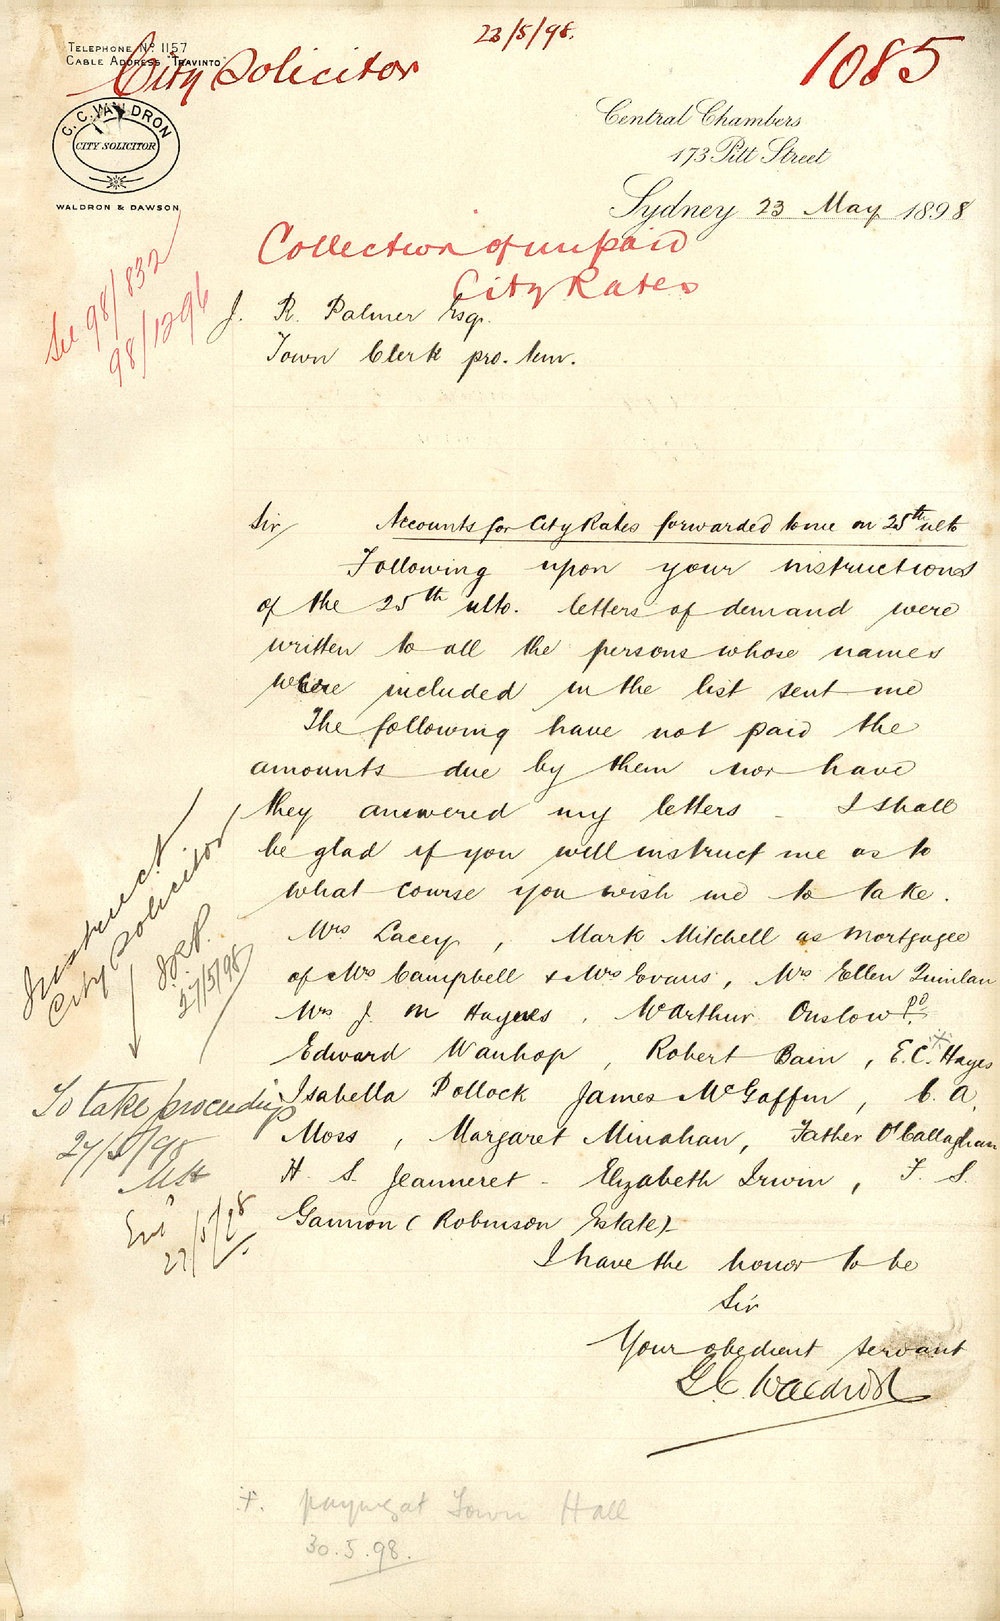 23/5/98.
1085
TELEPHONE No 1157
CABLE ADDRESS "TRAVINTO"
City Solicitor
G. C. WALDRON
CITY SOLICITOR
WALDRON & DAWSON
Central Chambers
173 Pitt Street
Sydney 23 May 1898
Collection of unpaid
City Rates
See 98/832
98/1296
J. R. Palmer Esq.
Town Clerk pro. tem.
Sir
Accounts for City Rates forwarded to me on 25th ulto
Following upon your instructions
of the 25th ulto. letters of demand were
written to all the persons whose names
were included in the list sent me
The following have not paid the
amounts due by them nor have
they answered my letters - I shall
be glad if you will instruct me as to
what course you wish me to take.
Mrs Lacey, Mark Mitchell as Mortgagee
of Mrs Campbell & Mrs Evans, Mrs Ellen Quinlan
Mrs J. M Haynes, McArthur Onslow
Edward Wanhop, Robert Bain, E.C. Hayes
Isabella Pollock James McGaffin, C. A.
Moss, Margaret Minahan, Father O'Callaghan
H. S. Jeanneret - Elizabeth Irwin, F. S.
Gannon (Robinson Estate)
I have the honor to be
Sir
Your obedient servant
G C Waldron
Instruct
City Solicitor
J.R.P.
27/5/98
To take proceedings
27/5/98
27/5/98
+. paying at Town Hall
30.5.98.